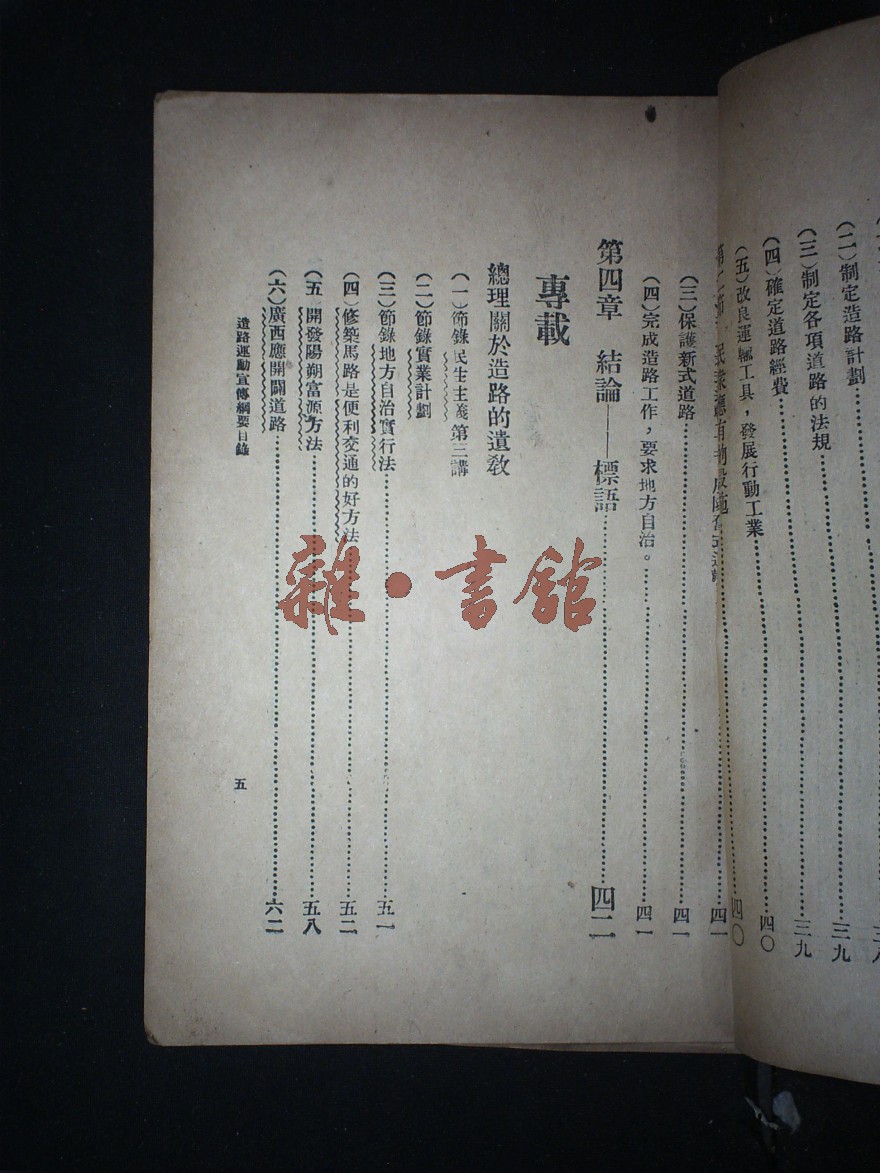 (二)制定造路計劃……三九
(三)制定各項道路的法規……三九
(四)確定道路經費……四〇
(五)改良運輸工具,發展行動工業……四〇
四一
(三)保護新式道路……四一
(四)完成造路工作,要求地方自治。……四一
第四章 結論——標語……四二
專載
總理關於造路的遺教
(一)節錄民生主義第三講
(二)節錄實業計劃
(三)節錄地方自治實行法……五一
(四)修築馬路是便利交通的好方法……五二
(五)開發陽朔富源方法……五八
(六)廣西應開闢道路……六二
造路運動宣傳綱要目錄
五
雜·書館